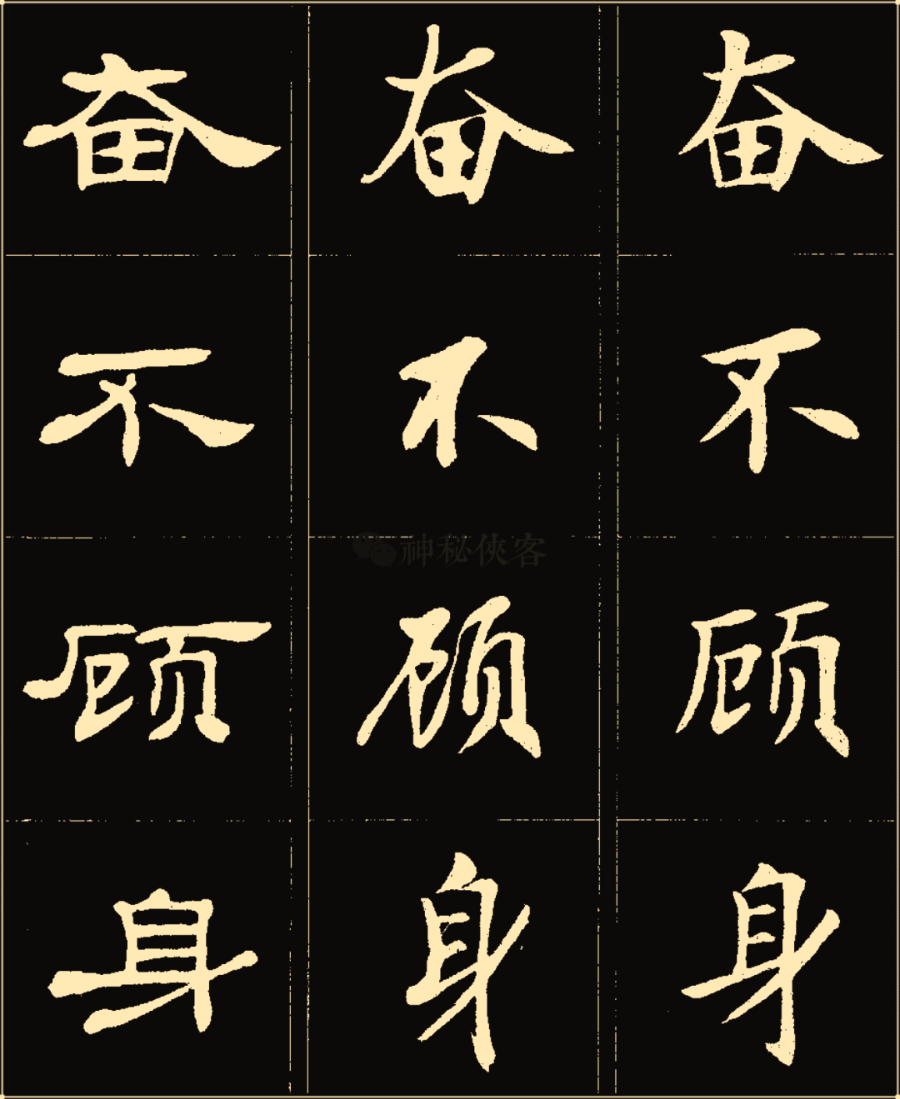 奋 奋 奋
不 不 不
神秘侠客
顾 顾 顾
身 身 身